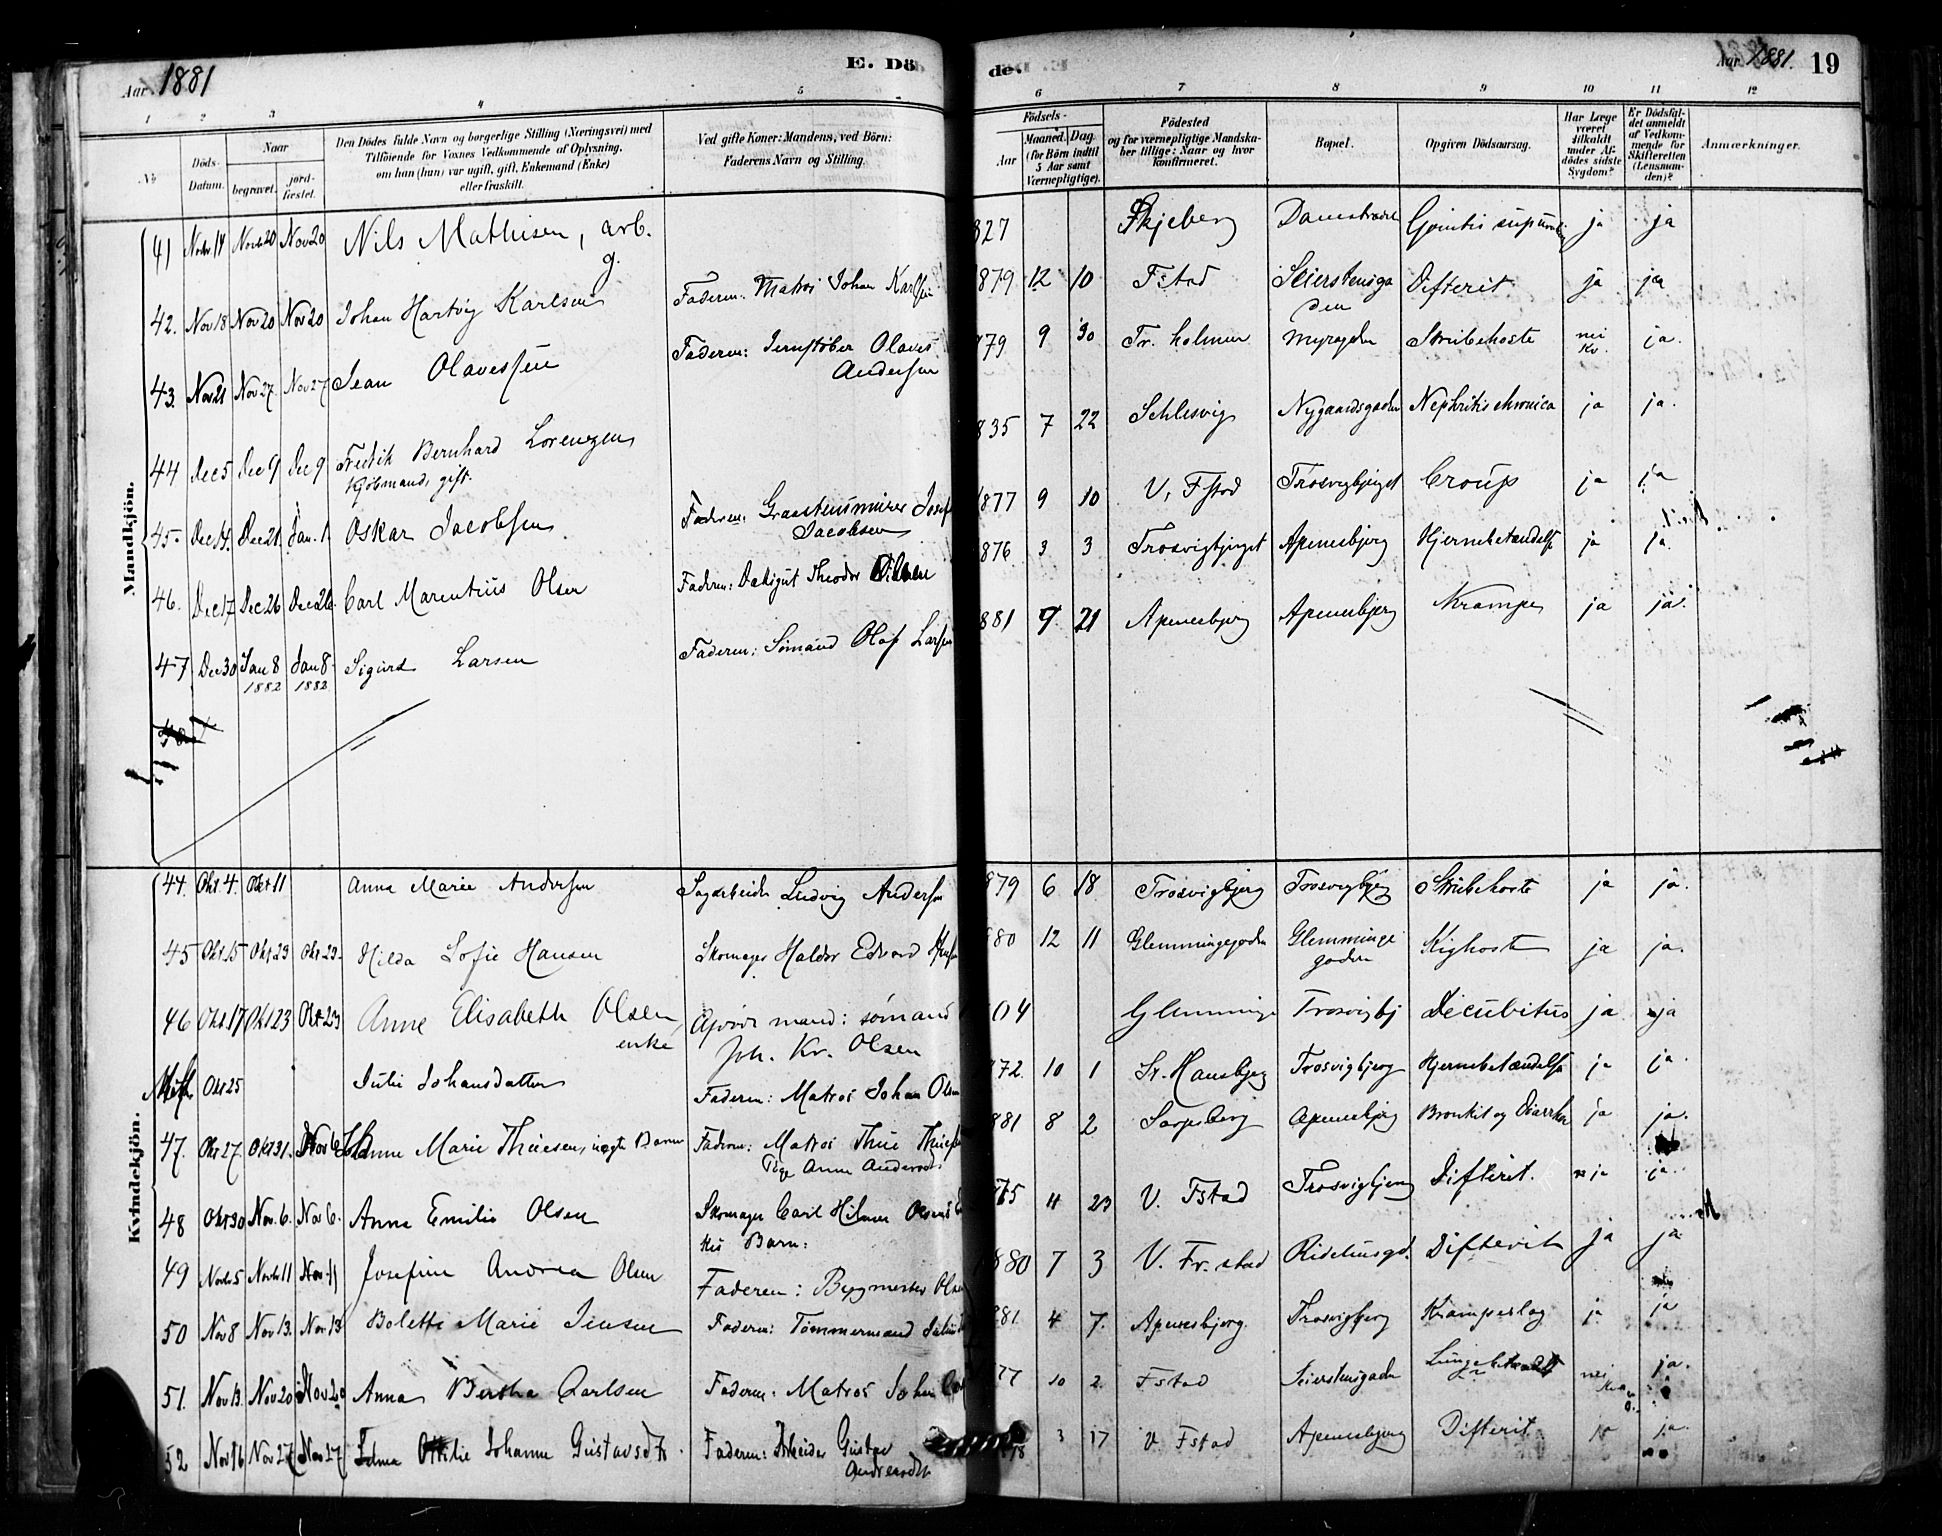 Aar 1881
E. Dö
de.
Aar 1881. 19
1 2 3 4 5 6 7 8 9 10 11 12
No
Döds-Datum.
Naar
begravet.
jordfæstet.
Den Dödes fulde Navn og borgerlige Stilling (Næringsvei) med
Tilföiende for Voxnes Vedkommende af Oplysning,
om han (hun) var ugift, gift, Enkemand (Enke)
eller fraskilt.
Ved gifte Koner: Mandens, ved Börn:
Faderens Navn og Stilling.
Födsels-
Aar
Maaned. Dag
(for Börn indtil
5 Aar samt
Værnepligtige).
Födested
og for værnepligtige Mandska-
ber tillige: Naar og hvor
konfirmeret.
Bopæl.
Opgiven Dödsaarsag.
Har Læge
været
tilkaldt
under Af-
dödes sidste
Sygdom?
Er Dödsfal-
det anmeldt
af Vedkom-
mende for
Skifteretten
(Lensman-
den)?
Anmærkninger.
Mandkjön.
41 Novbr. 14 Novb 20 Nov 20 Nils Mathisen, arb. g. 827 Skjeberg ja ja
42. Nov 18 Nov 20 Nov 20 Johan Hartvig Karlsen Faderen: Matros Johan Karlsen 1879 12 10 Fstad Seierstensga
den Difterit ja ja
43. Nov 21 Nov 27. Nov 27 Jean Olavessen Faderen: Jernstöber Olaves
Andersen 879 9 30 Fr. holmen Myragaden Strubehoste nei
Kv. ja.
44 Dec 5 Dec 9 Dec 9 Fredrik Bernhard Lorenzen
Kjöbmand, gift. 835 7 22 Schlesvig Nygaardsgaden Nephritis chronica ja ja.
45 Dec 14. Dec 21 Jan. 1 Oskar Jacobsen Faderen: Graastensmurer Josef
Jacobsen 1877 9 10 V. Fstad Trosvigbjerget Croup ja ja
46. Dec 17 Dec 26 Dec 26. Carl Marentius Olsen Faderen: Theodor 876 3 3 Trosvigbjerget Apenesbjerg Hjernebetændelse ja ja
47 Dec 30 Jan 8
1882 Jan 8
1882 Sigurd Larsen Faderen: Sömand Olaf Larsen 881 9 21 Apenesbjerg Apenesbjerg Krampe ja ja.
Kvindekjön.
44. Okt. 4. Okt 11 Anna Marie Andersen Sagarbeider Ludvig Andersen 879 6 18 Trosvigbjerg Trosvigbjerg Strubehoste ja ja.
45 Okt. 15 Okt 23 Okt 23. Hilda Sofie Hansen Skomager Haldor Edvard 880 12 11 Glemmingegaden Glemminge
gaden Kighoste ja ja.
46 Okt. 17 Okt 23 Okt 23 Anne Elisabeth Olsen,
enke mand: sömand
Joh. Kr. Olsen 04 Glemminge Trosvigbj Decubitus ja ja
Okt 25 Julie Johansdatter Faderen: Matros Johan Olsen 872. 10 1 St. Hansbjerg Trosvigbjerg Hjernebetændelse ja ja
47. Okt 27 Okt 31. Nov 6 Anne Marie Thiesen, uægte Barn Faderen: Matros Thue
Pige Anne Andersdt 881 8 2 Sarpsborg Apenesbjerg Bronkit og Diarrhe ja ja.
48 Okt 30 Nov. 6. Nov 6. Anna Emilie Olsen Skomager Carl Hilmar Olsens
Barn. 75 11 23 V. Fstad Trosvigbjerg Difterit. ja ja.
49 Novb. 5 Novb 11 Nov 11 Josefine Andrea Olsen Faderen: Bygmester Olsen 1880 7 3 V. Fr. stad Ridehusgd. Difterit ja ja
50 Nov 8 Nov 13. Nov 13 Bolette Marie Jensen Faderen: Tömmermand 881 4 7. Apenesbjerg. Trosvigbjerg Krampeslag ja ja
51. Nov 13. Nov 20 Nov 20 Anna Bertha Carlsen Faderen: Matros Johan 77 10 2 Fstad Seierstensgaden Lungebetændelse nei ja.
52 Nov 16 Nov 27 Nov 27 Ottilie Johanne Gustavsdtr. Faderen: Arbeider Gustav
78 3 17 V. Fstad Apenesbjerg Difterit ja ja.